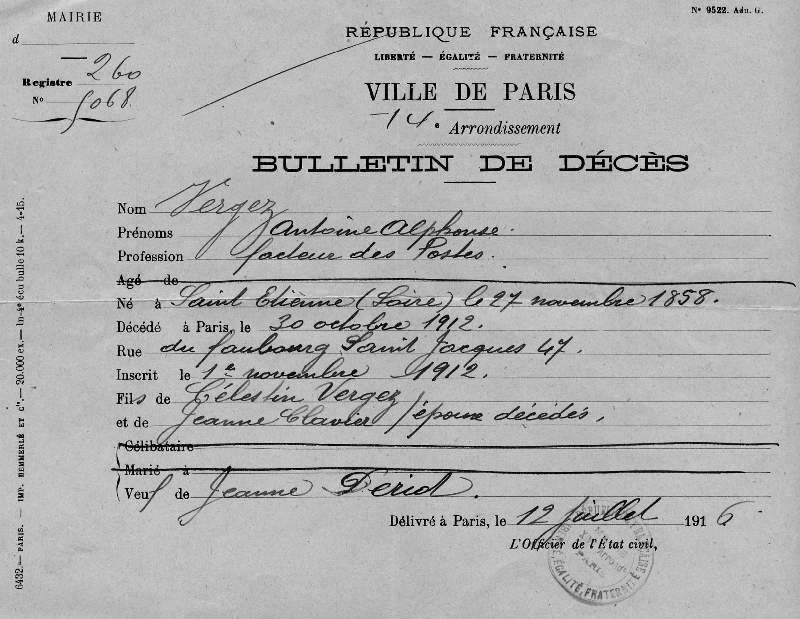 MAIRIE
N° 9522. Adm. G.
d
RÉPUBLIQUE FRANÇAISE
LIBERTÉ — ÉGALITÉ — FRATERNITÉ
Registre 260
N° 5068.
VILLE DE PARIS
14e Arrondissement
BULLETIN DE DÉCÈS
Nom Vergez
Prénoms Antoine Alphonse.
Profession facteur des Postes.
Agé de
Né à Saint Etienne (Loire) le 27 novembre 1858.
Décédé à Paris, le 30 octobre 1912.
Rue du faubourg Saint Jacques 47.
Inscrit le 1er novembre 1912.
Fils de Célestin Vergez
et de Jeanne Clavier / époux décédés,
Célibataire
Marié à
Veuf de Jeanne Deriot.
Délivré à Paris, le 12 juillet 1916
L'Officier de l'État civil,
LIBERTÉ, ÉGALITÉ, FRATERNITÉ
6432.— PARIS. — IMP. HEMMERLÉ ET Cie.— 20.000 ex.— In-4° écu bulle 10 k.— 4-15.